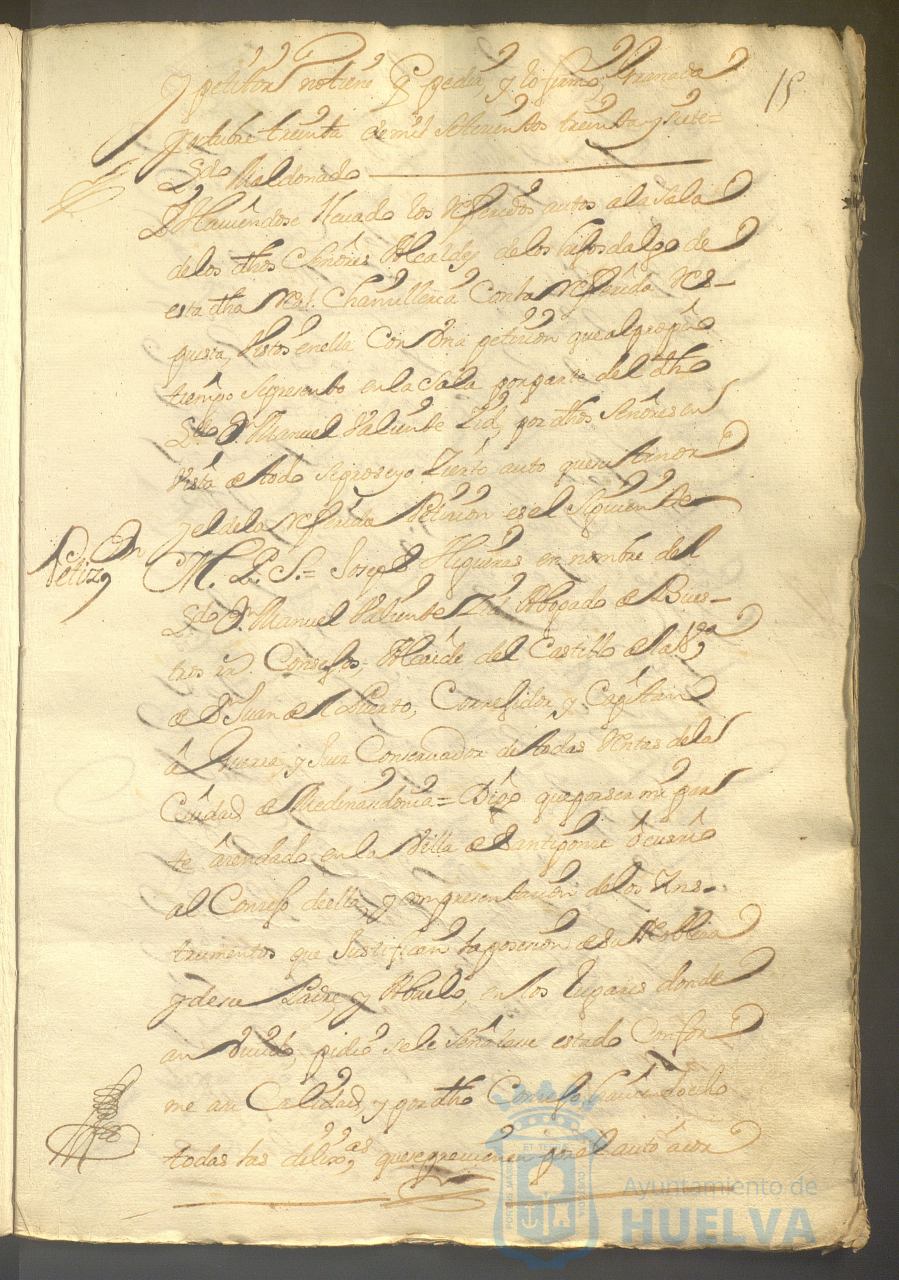 15
Y petition notiene q̃ pedir, y lo firmo, Granada
y octubre treinta de mil setezientos treinta y siete=
Lzdo Maldonado
Y Haviendose llevado los referidos autos a la Sala
de los dhos Señores Alcaldes de los hijosdalgo de
esta dha Real Chanzilleria Con la referida Res-
puesta, vistos en ella Con Una peticion que al propio
tiempo se presento en la Sala por parte del dho
Lzdo Dn Manuel Valiente Zid, por dhos Señores en
vista de todo se proveyo Zierto auto que su tenor
y el de la referida Peticion es el Siguiente
Petizon
M. P. S.= Joseph Higueras en nombre del
Lzdo Dn Manuel Valiente Zid Abogado de Bues-
tros Rs. Consejos, Alcaide del Castillo de la
de Sn Juan de el Puerto, Corregidor y Capitan
a Guerra, y Juez Conservador de todas Rentas de la
Ciudad de Medinasidonia= Digo que por ser mi par
te arendado en la Villa de Santiponze ocurrio
al Consejo de ella, y con presentacion de los Yns-
trumentos que Justifican la posesion de su Nobleza
y de su Padre, y Abuelo, en los lugares donde
an vivido, pidio se le señalase estado Confor
me a su Calidad, y por dho Consejo haviendo echo
todas las dilixas que se previenen por el auto acor
Ayuntamiento de
HUELVA